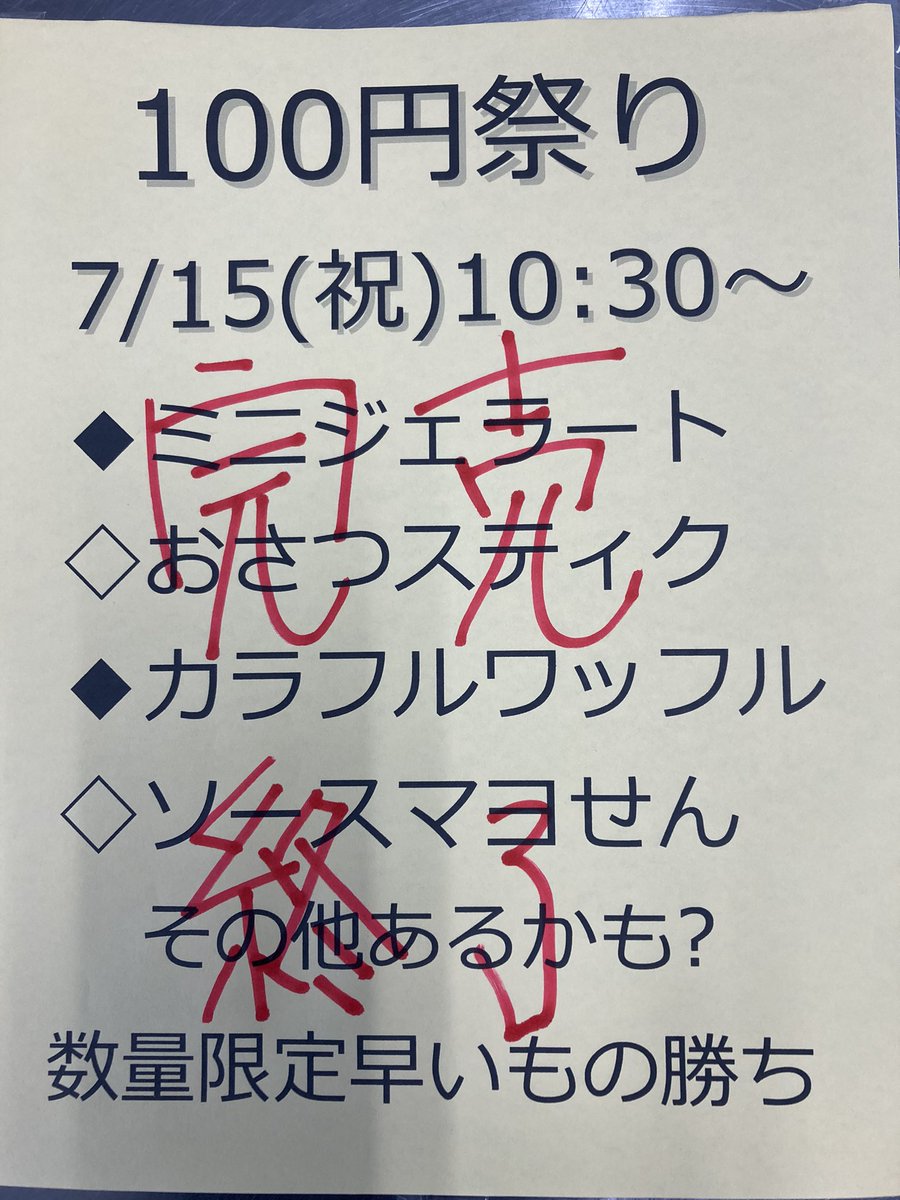 100円祭り
7/15(祝)10:30～
◆ミニジェラート
完売
◇おさつスティク
◆カラフルワッフル
◇ソースマヨせん
終了
その他あるかも?
数量限定早いもの勝ち